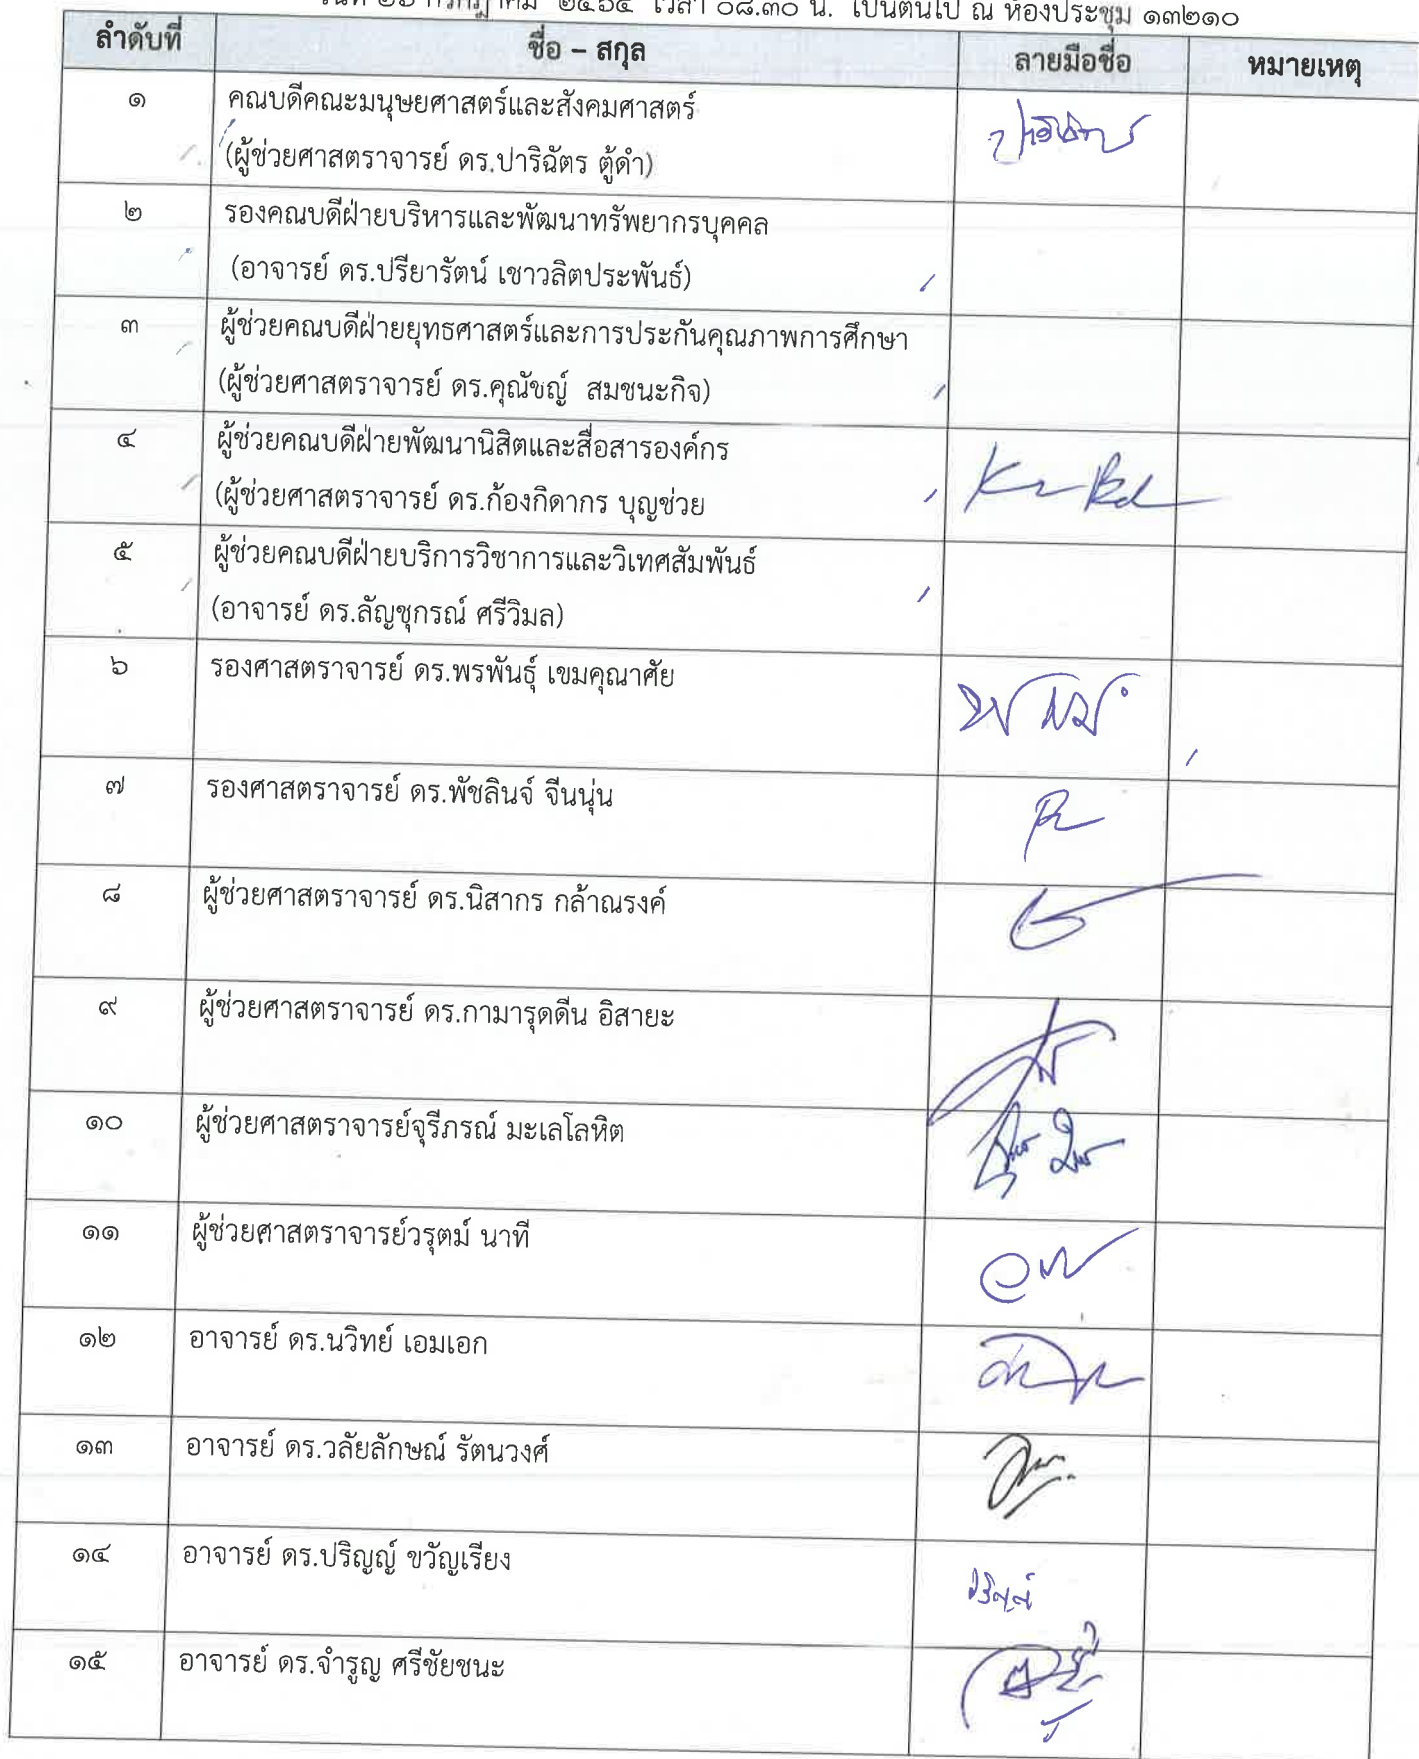 กรกฎาคม ๒๕๖๔ เวลา ๐๘.๓๐ น. เป็นต้นไป ณ ห้องประชุม ๑๓๒๑๐
ลำดับที่ ชื่อ – สกุล ลายมือชื่อ หมายเหตุ
๑ คณบดีคณะมนุษยศาสตร์และสังคมศาสตร์
(ผู้ช่วยศาสตราจารย์ ดร.ปาริฉัตร ตู้ดำ)
๒ รองคณบดีฝ่ายบริหารและพัฒนาทรัพยากรบุคคล
(อาจารย์ ดร.ปรียารัตน์ เชาวลิตประพันธ์)
๓ ผู้ช่วยคณบดีฝ่ายยุทธศาสตร์และการประกันคุณภาพการศึกษา
(ผู้ช่วยศาสตราจารย์ ดร.คุณัชญ์ สมชนะกิจ)
๔ ผู้ช่วยคณบดีฝ่ายพัฒนานิสิตและสื่อสารองค์กร
(ผู้ช่วยศาสตราจารย์ ดร.ก้องกิดากร บุญช่วย
๕ ผู้ช่วยคณบดีฝ่ายบริการวิชาการและวิเทศสัมพันธ์
(อาจารย์ ดร.ลัญชุกรณ์ ศรีวิมล)
๖ รองศาสตราจารย์ ดร.พรพันธุ์ เขมคุณาศัย
๗ รองศาสตราจารย์ ดร.พัชลินจ์ จีนนุ่น
๘ ผู้ช่วยศาสตราจารย์ ดร.นิสากร กล้าณรงค์
๙ ผู้ช่วยศาสตราจารย์ ดร.กามารุดดีน อิสายะ
๑๐ ผู้ช่วยศาสตราจารย์จุรีภรณ์ มะเลโลหิต
๑๑ ผู้ช่วยศาสตราจารย์วรุตม์ นาที
๑๒ อาจารย์ ดร.นวิทย์ เอมเอก
๑๓ อาจารย์ ดร.วลัยลักษณ์ รัตนวงศ์
๑๔ อาจารย์ ดร.ปริญญ์ ขวัญเรียง
ปริญญ์
๑๕ อาจารย์ ดร.จำรูญ ศรีชัยชนะ